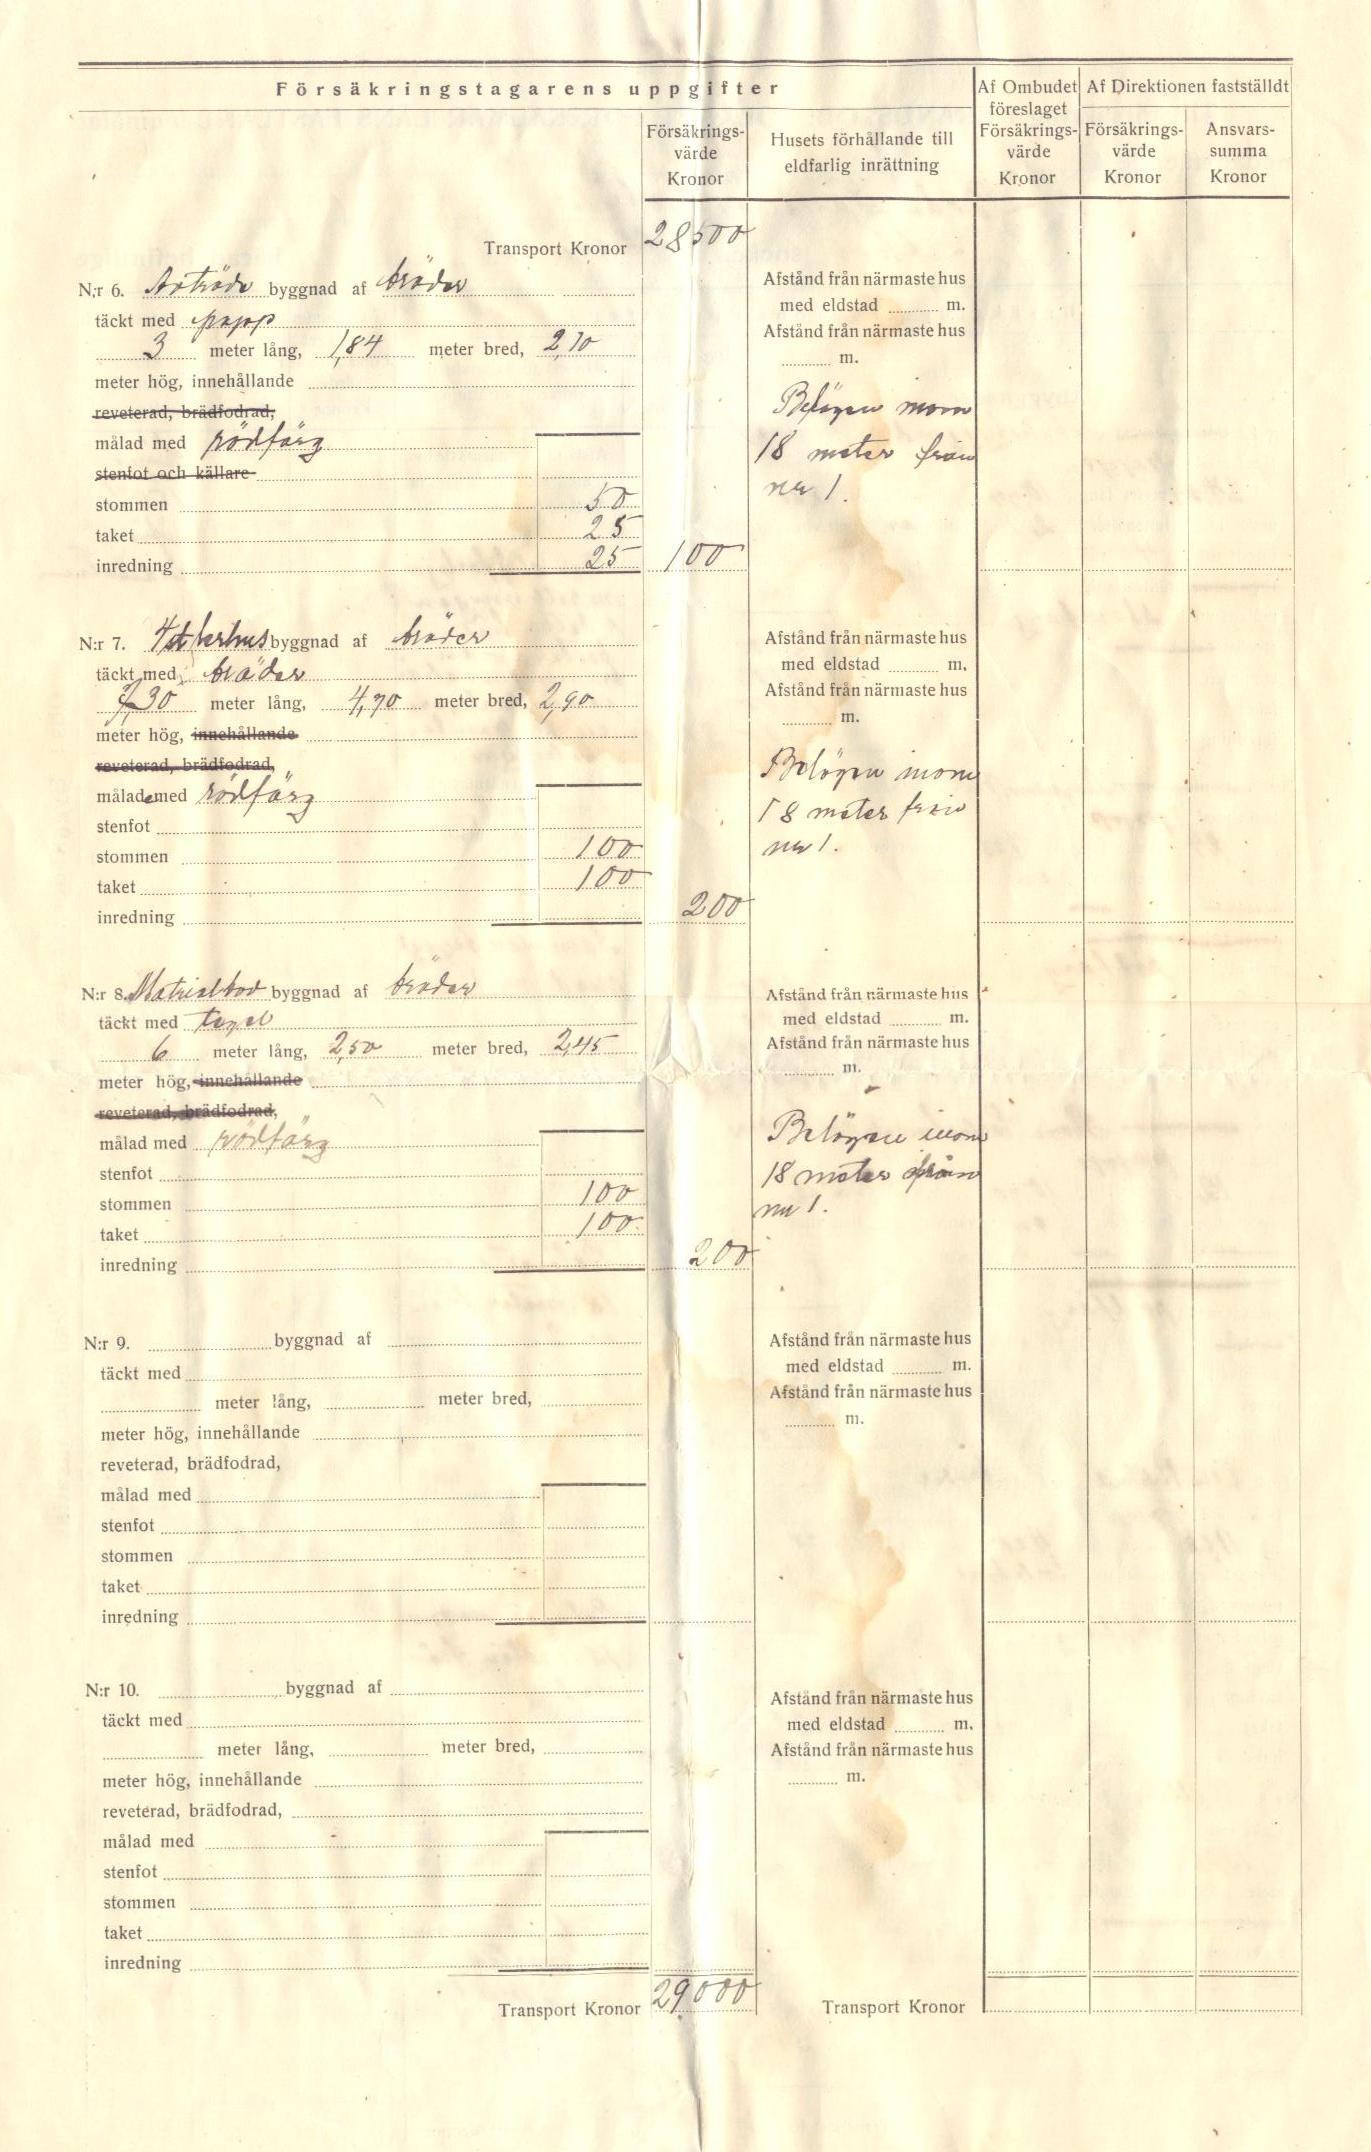 Försäkringstagarens uppgifter
Af Ombudet föreslaget Försäkrings-värde Kronor
Af Direktionen fastställdt
Försäkrings-värde Kronor
Husets förhållande till eldfarlig inrättning
Försäkrings-värde Kronor
Ansvars-summa Kronor
Transport Kronor 28500
N:r 6. byggnad af bräder
täckt med papp
3 meter lång, 1,84 meter bred, 2,10
meter hög, innehållande
reveterad, brädfodrad,
målad med rödfärg
stenfot och källare
stommen 50
taket 25
inredning 25 100
Afstånd från närmaste hus
med eldstad m.
Afstånd från närmaste hus
m.
Belägen inom
18 meter från
nr 1.
N:r 7. byggnad af bräder
täckt med bräder
7,30 meter lång, 4,70 meter bred, 2,90
meter hög, innehållande
reveterad, brädfodrad,
målade med rödfärg
stenfot
stommen 100
taket 100
inredning 200
Afstånd från närmaste hus
med eldstad m.
Afstånd från närmaste hus
m.
Belägen inom
18 meter från
nr 1.
N:r 8. Matrialbod byggnad af bräder
täckt med tegel
6 meter lång, 2,50 meter bred, 2,45
meter hög, innehållande
reveterad, brädfodrad,
målad med rödfärg
stenfot
stommen 100
taket 100
inredning 200
Afstånd från närmaste hus
med eldstad m.
Afstånd från närmaste hus
m.
Belägen inom
18 meter från
nr 1.
N:r 9. byggnad af
täckt med
meter lång, meter bred,
meter hög, innehållande
reveterad, brädfodrad,
målad med
stenfot
stommen
taket
inredning
Afstånd från närmaste hus
med eldstad m.
Afstånd från närmaste hus
m.
N:r 10. byggnad af
täckt med
meter lång, meter bred,
meter hög, innehållande
reveterad, brädfodrad,
målad med
stenfot
stommen
taket
inredning
Afstånd från närmaste hus
med eldstad m.
Afstånd från närmaste hus
m.
Transport Kronor 29000 Transport Kronor